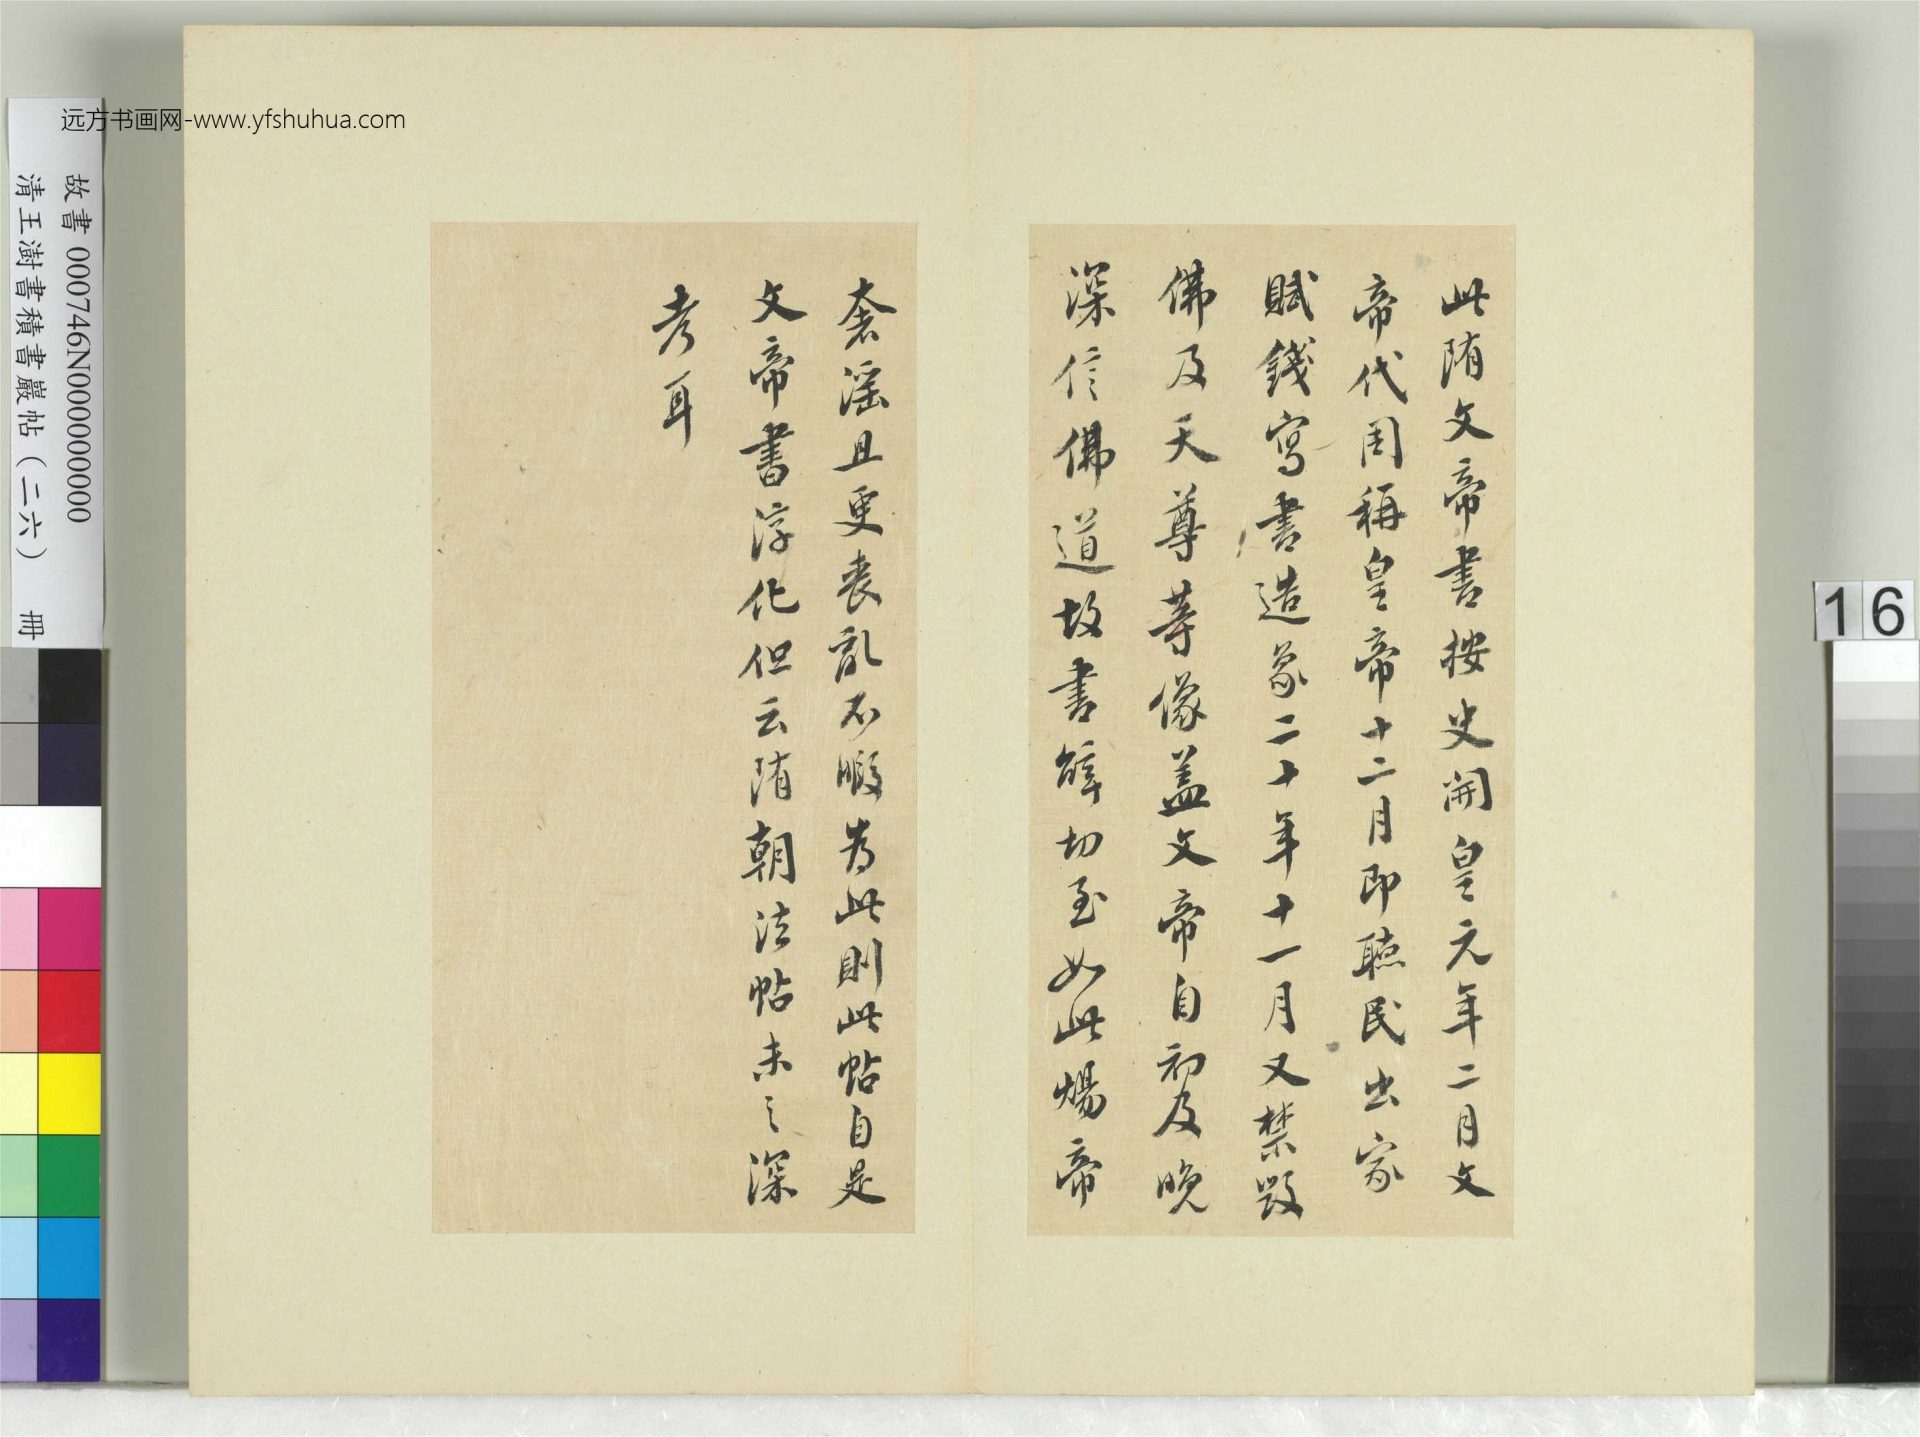 远方书画网-www.yfshuhua.com
故書 000746N000000000
清王澍書積書巖帖（二六） 冊
16
此隋文帝書按史開皇元年二月文
帝代周稱皇帝十二月即聽民出家
賦錢寫書造象二十年十一月又禁毀
佛及天尊等像蓋文帝自初及晚
深信佛道故書辭切至如此煬帝
奢淫且更喪亂不暇為此則此帖自是
文帝書淳化但云隋朝法帖未之深
考耳